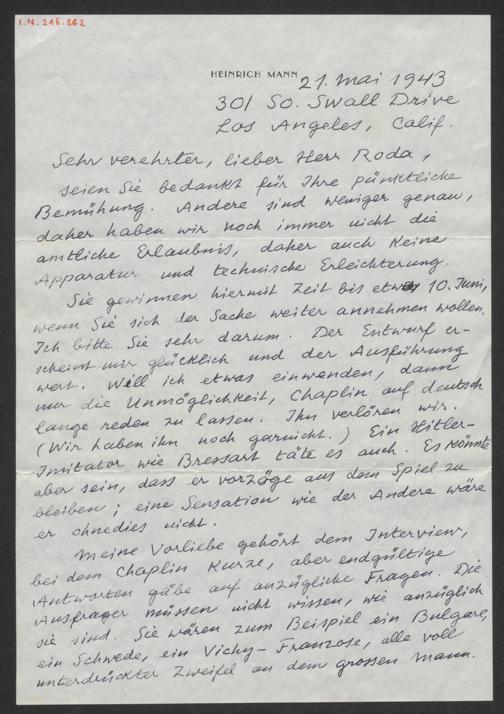 I.N. 215.562
HEINRICH MANN
21. Mai 1943
301 So. Swall Drive
Los Angeles, Calif.
Sehr verehrter, lieber Herr Roda,
seien Sie bedankt für Ihre pünktliche
Bemühung. Andere sind weniger genau,
daher haben wir noch immer nicht die
amtliche Erlaubnis, daher auch keine
Apparatur und technische Erleichterung.
Sie gewinnen hiermit Zeit bis etwa 10. Juni,
wenn Sie sich der Sache weiter annehmen wollen.
Ich bitte Sie sehr darum. Der Entwurf er-
scheint mir glücklich und der Ausführung
wert. Will ich etwas einwenden, dann
nur die Unmöglichkeit, Chaplin auf deutsch
lange reden zu lassen. Ihn verlören wir.
(Wir haben ihn noch garnicht.) Ein Hitler-
Imitator wie Bressart täte es auch. Es könnte
aber sein, dass er vorzöge aus dem Spiel zu
bleiben; eine Sensation wie der Andere wäre
er ohnedies nicht.
Meine Vorliebe gehört dem Interview,
bei dem Chaplin kurze, aber endgültige
Antworten gäbe auf anzügliche Fragen. Die
Ausfrager müssen nicht wissen, wie anzüglich
sie sind. Sie wären zum Beispiel ein Bulgare,
ein Schwede, ein Vichy-Franzose, alle voll
unterdrückter Zweifel an dem grossen Mann.